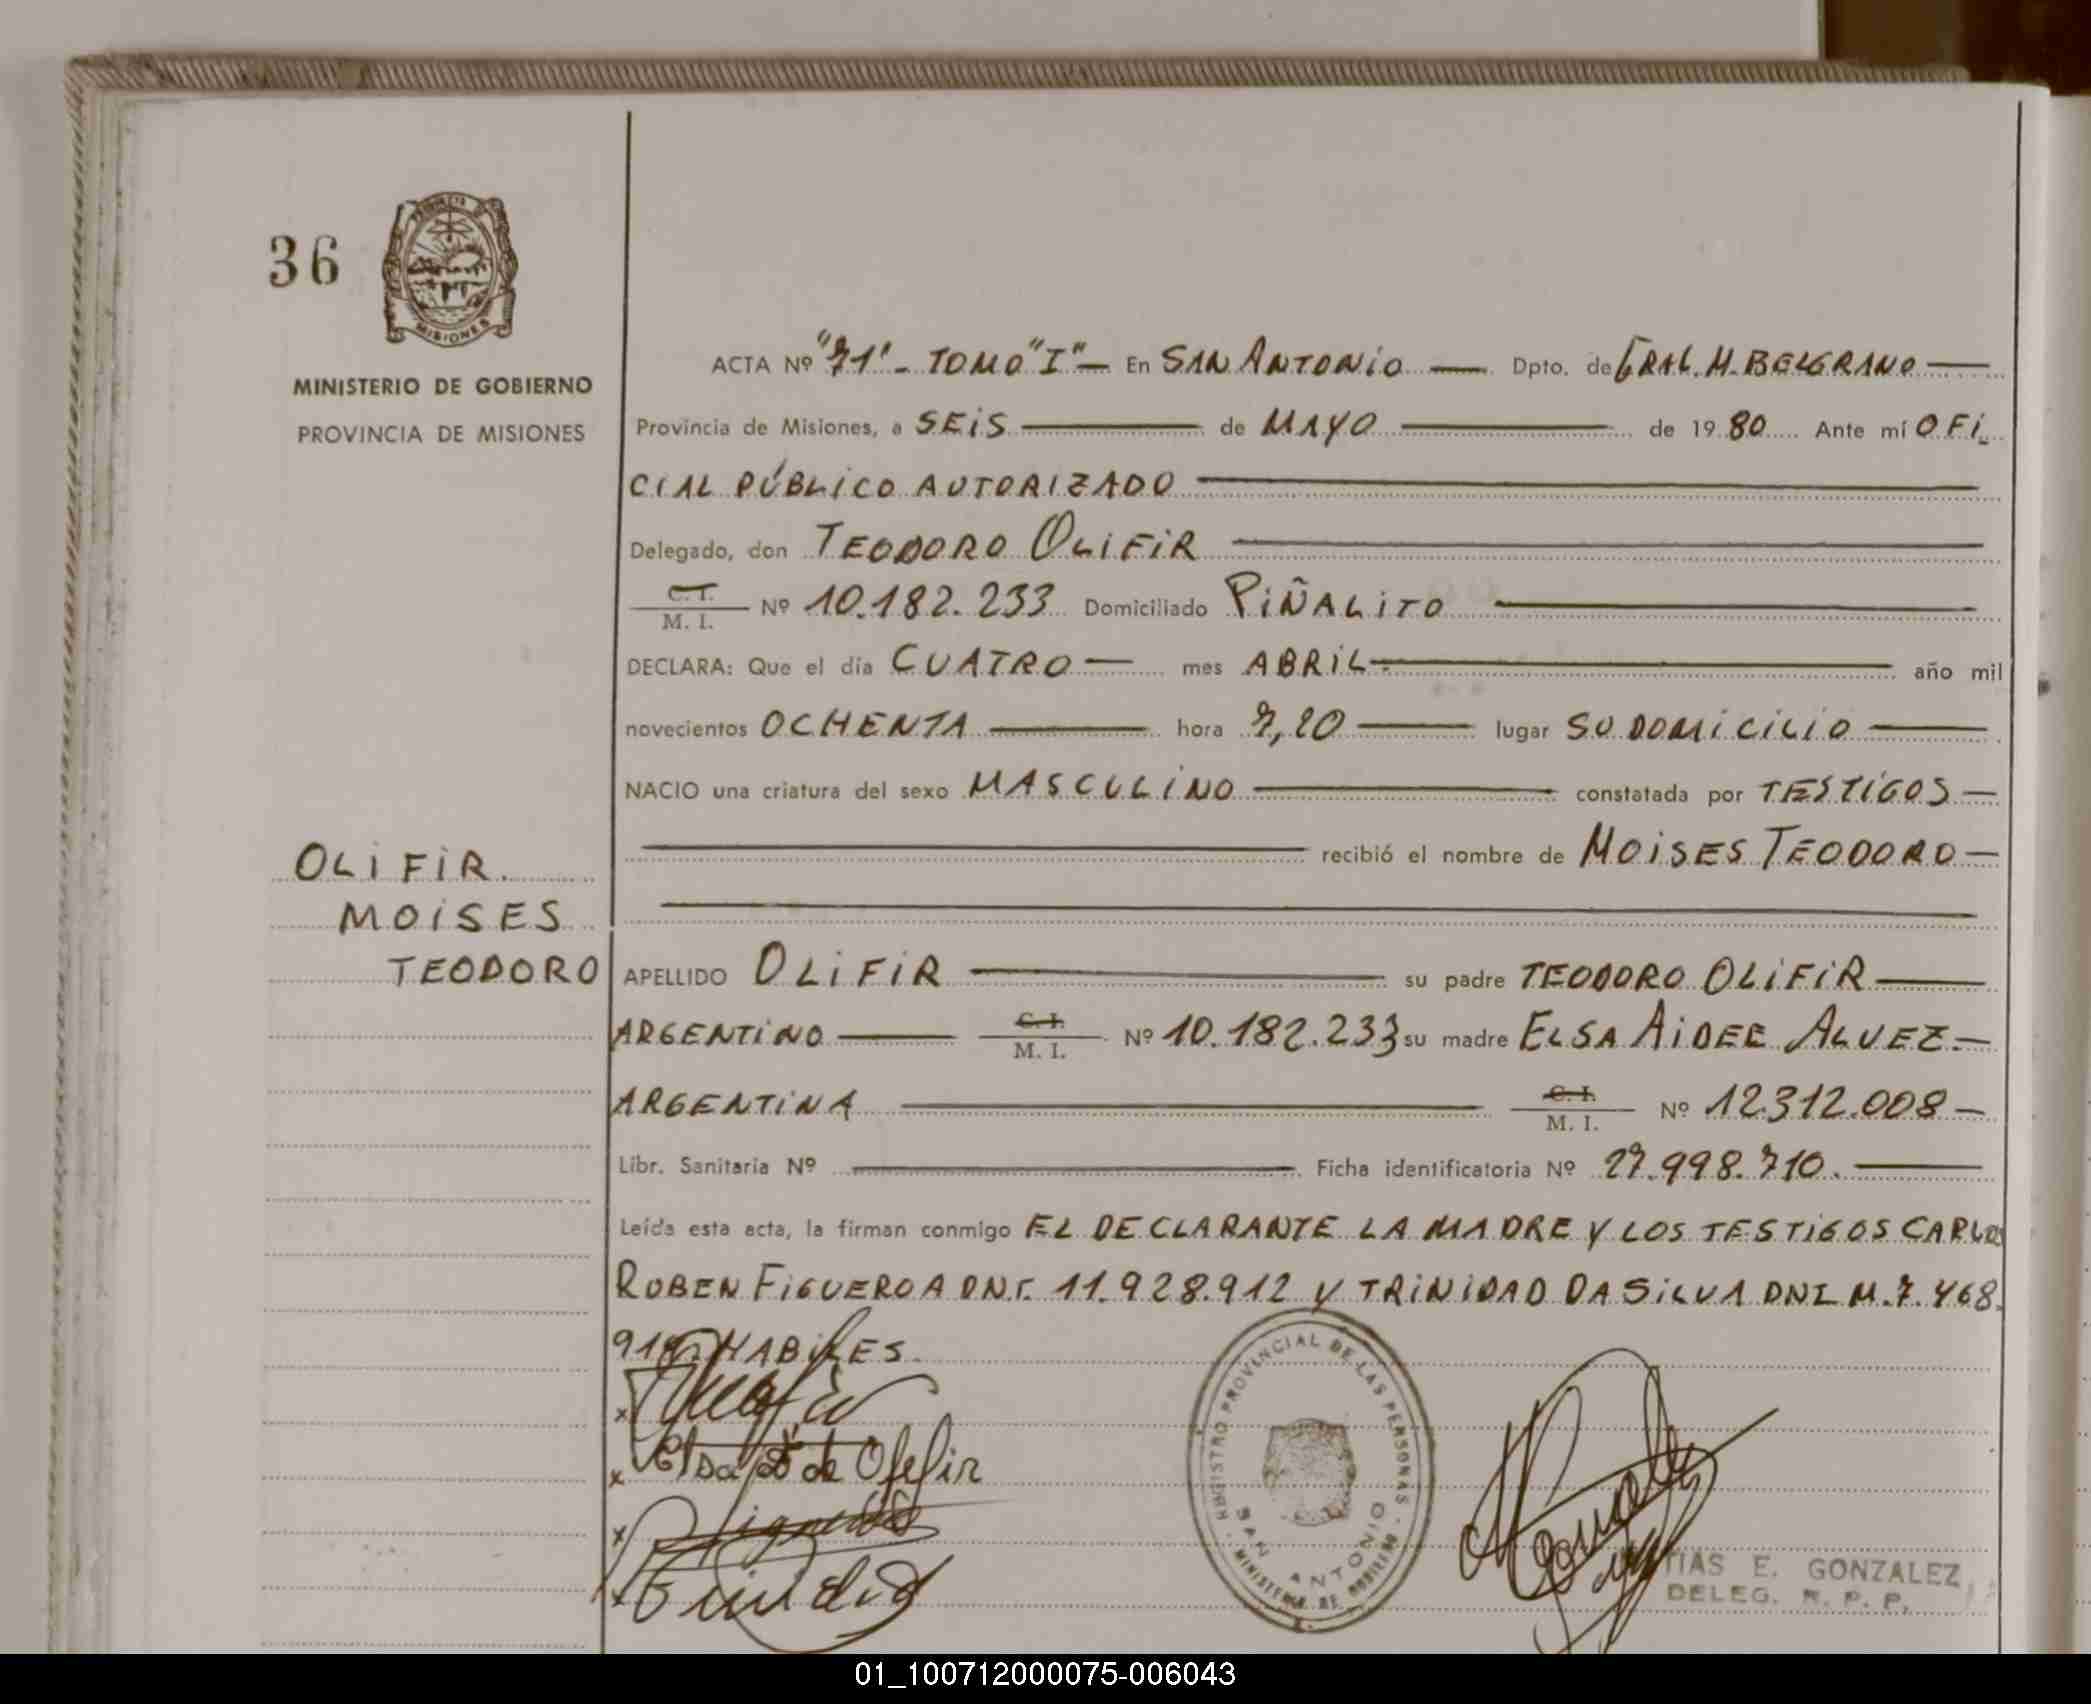 36
PROVINCIA DE
MISIONES
MINISTERIO DE GOBIERNO
PROVINCIA DE MISIONES
OLIFIR
MOISES
TEODORO
ACTA Nº "71" - TOMO "I" - En SAN ANTONIO Dpto. de GRAL. M. BELGRANO
Provincia de Misiones, a SEIS de MAYO de 1980 Ante mí OFI-
CIAL PÚBLICO AUTORIZADO
Delegado, don TEODORO OLIFIR
C. I. M. I. Nº 10.182.233 Domiciliado PIÑALITO
DECLARA: Que el día CUATRO mes ABRIL año mil
novecientos OCHENTA hora 7,20 lugar SU DOMICILIO
NACIO una criatura del sexo MASCULINO constatada por TESTIGOS
recibió el nombre de MOISES TEODORO
APELLIDO OLIFIR su padre TEODORO OLIFIR
ARGENTINO C. I. M. I. Nº 10.182.233 su madre ELSA AIDEE ALVEZ.
ARGENTINA C. I. M. I. Nº 12.312.008
Libr. Sanitaria Nº Ficha identificatoria Nº 27.998.710.
Leída esta acta, la firman conmigo EL DECLARANTE LA MADRE Y LOS TESTIGOS CARLOS
RUBEN FIGUEROA DNI. 11.928.912 Y TRINIDAD DA SILVA DNI M. 7.468.
HABILES.
x
x Elsa de Olefir
x
x
REGISTRO PROVINCIAL DE LAS PERSONAS
SAN ANTONIO
MINISTERIO DE GOBIERNO
TIAS E. GONZALEZ
DELEG. R. P. P.
01_100712000075-006043